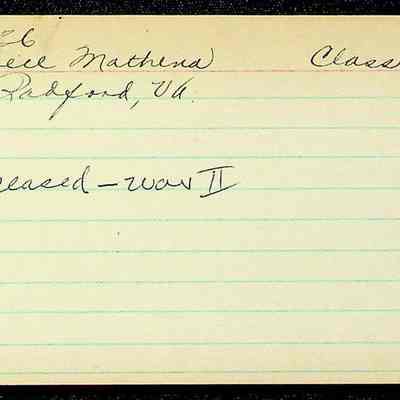 26
ecil Mathena Class
Radford, Va.
ceased - War II